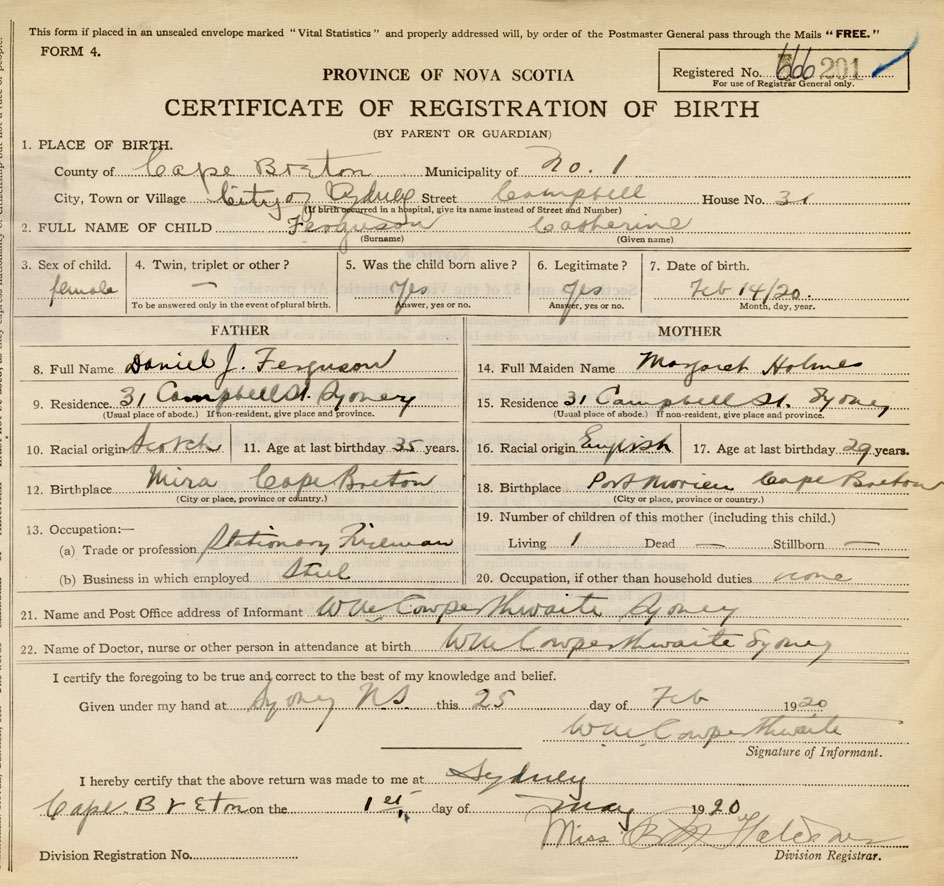 This form if placed in an unsealed envelope marked "Vital Statistics" and properly addressed will, by order of the Postmaster General pass through the Mails "FREE."
FORM 4.
PROVINCE OF NOVA SCOTIA
Registered No. 201
For use of Registrar General only.
CERTIFICATE OF REGISTRATION OF BIRTH
(BY PARENT OR GUARDIAN)
1. PLACE OF BIRTH.
County of Cape Breton Municipality of No. 1
City, Town or Village City of Sydney Street Campbell House No. 31
(If birth occurred in a hospital, give its name instead of Street and Number)
2. FULL NAME OF CHILD Ferguson Catherine
(Surname) (Given name)
3. Sex of child. 4. Twin, triplet or other? 5. Was the child born alive? 6. Legitimate? 7. Date of birth.
female — Yes Yes Feb 14/20.
To be answered only in the event of plural birth. Answer, yes or no. Answer, yes or no. Month, day, year.
FATHER MOTHER
8. Full Name Daniel J. Ferguson 14. Full Maiden Name Margaret Holmes
9. Residence. 31 Campbell St. Sydney 15. Residence 31 Campbell St. Sydney
(Usual place of abode.) If non-resident, give place and province. (Usual place of abode.) If non-resident, give place and province.
10. Racial origin Scotch 11. Age at last birthday 35 years. 16. Racial origin English 17. Age at last birthday 29 years.
12. Birthplace Mira Cape Breton 18. Birthplace Port Morien Cape Breton
(City or place, province or country.) (City or place, province or country.)
13. Occupation:— 19. Number of children of this mother (including this child.)
(a) Trade or profession Stationary Fireman Living 1 Dead — Stillborn —
(b) Business in which employed Steel 20. Occupation, if other than household duties. none
21. Name and Post Office address of Informant Wm Cowperthwaite Sydney
22. Name of Doctor, nurse or other person in attendance at birth Wm Cowperthwaite Sydney
I certify the foregoing to be true and correct to the best of my knowledge and belief.
Given under my hand at Sydney N.S. this 25 day of Feb 1920
Wm Cowperthwaite
Signature of Informant.
I hereby certify that the above return was made to me at Sydney
Cape Breton on the 1st day of May 1920
Miss
Division Registration No. Division Registrar.